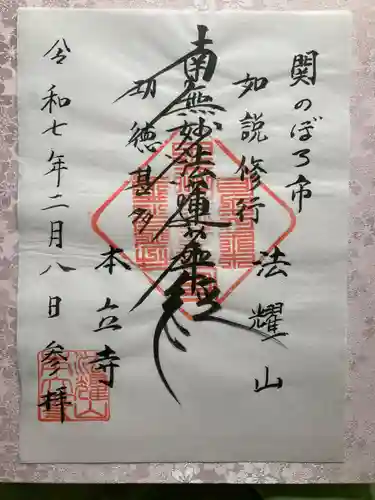 関のぼろ市
如説修行
法耀山
南無妙法蓮華経
功徳甚多
本立寺
令和七年二月八日参拝